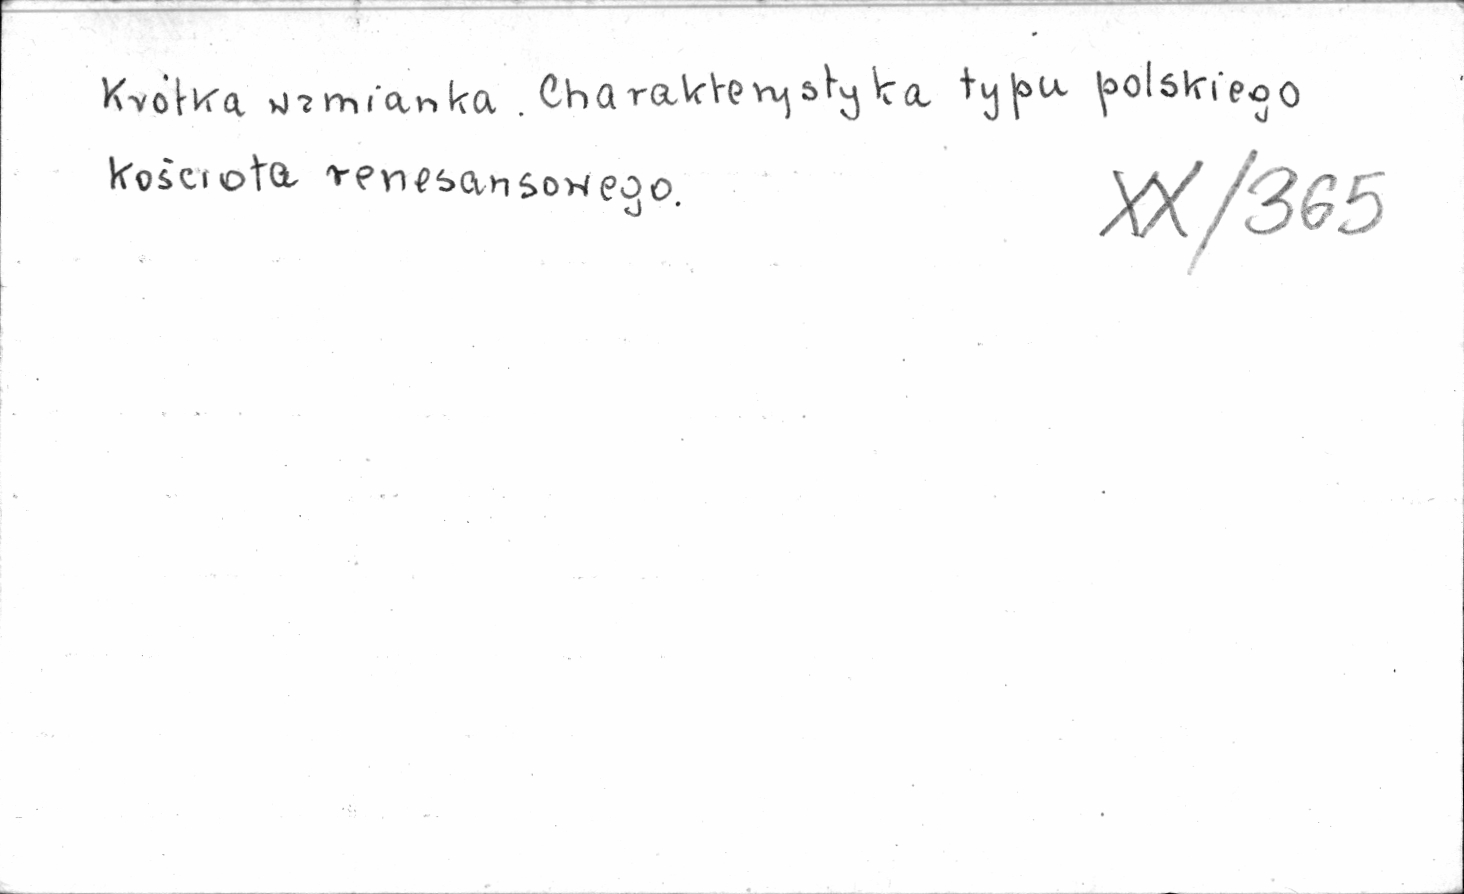 Krótka wzmianka. Charakterystyka typu polskiego
kościoła renesansowego.
XX/365